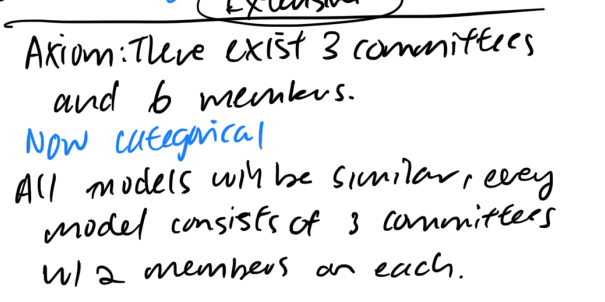 Extensive
Axiom: There exist 3 committees
and 6 members.
Now categorical
All models will be similar, every
model consists of 3 committees
w/ 2 members on each.